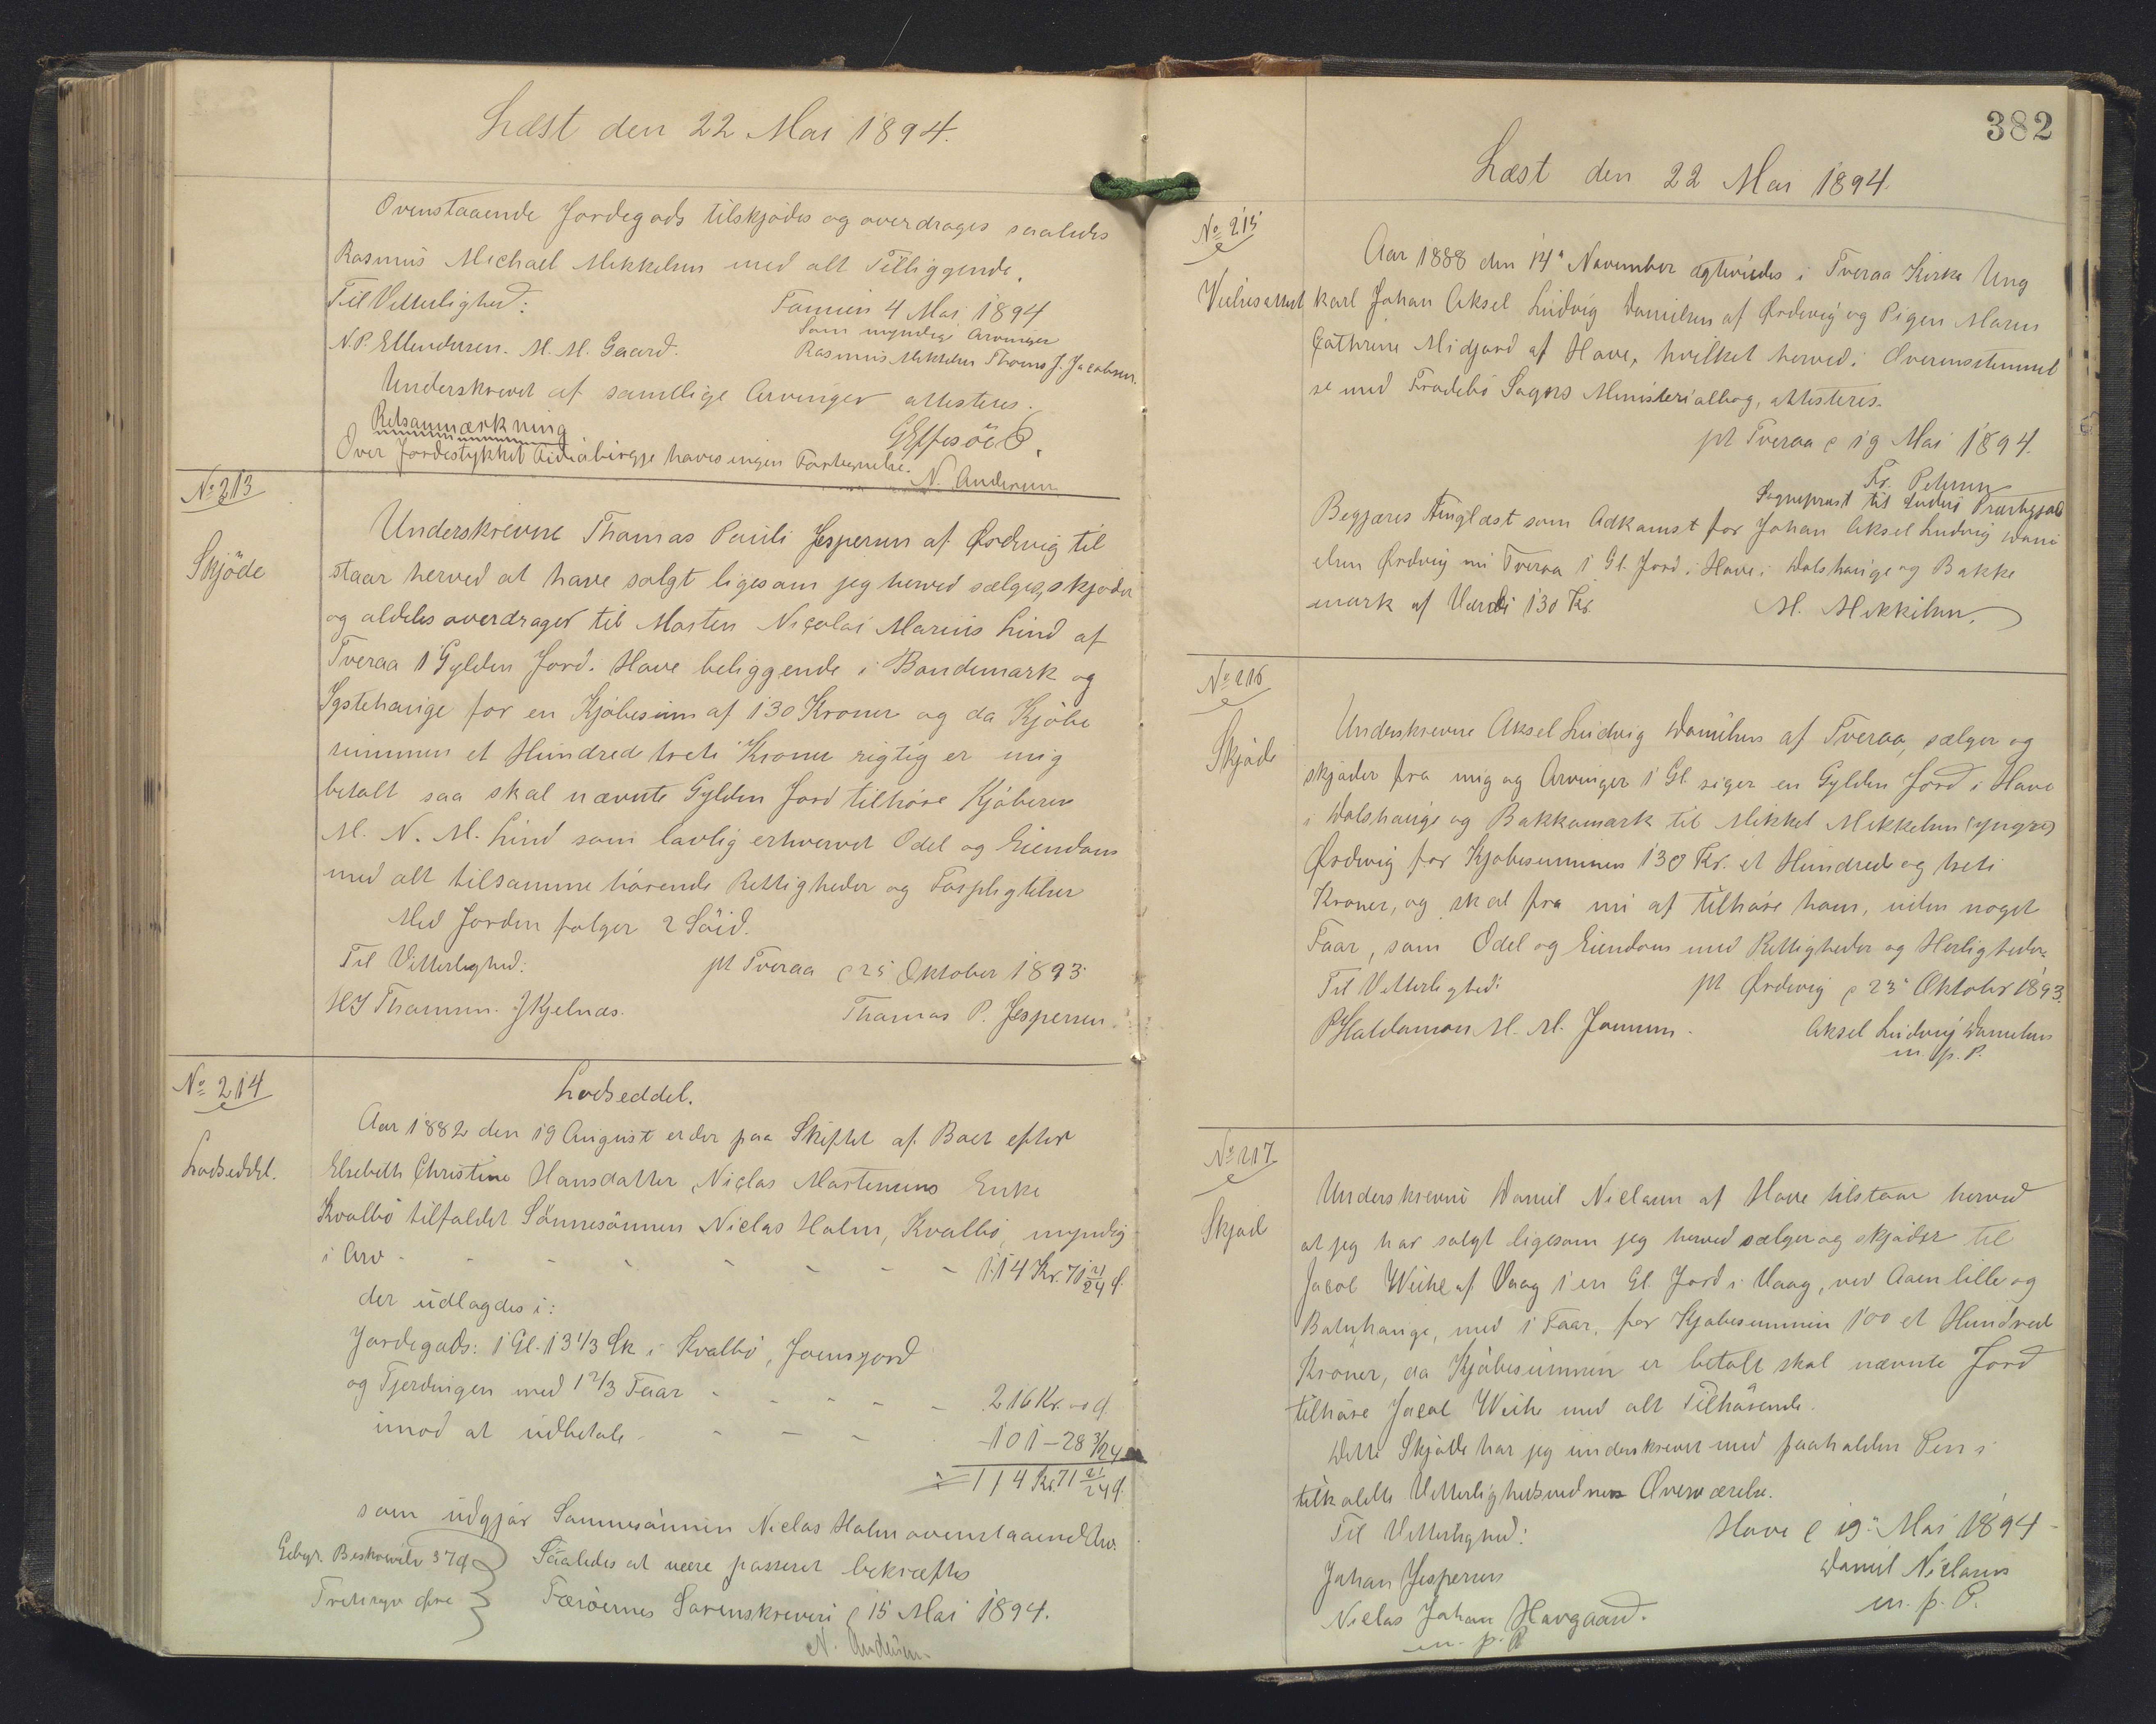 Læst den 22 Mai 1894.
Ovenstaaende Jordegods tilskjødes og overdrages saaledes
Rasmus Michael Mikkelsen med alt Tilliggende.
Til Vitterlighed: Famien 4 Mai 1894
Som myndige Arvinger
N. P. Ellendersen. M. M. Gaard. Rasmus Mikkelsen Thomas J. Jacobsen.
Underskrevet af samtlige Arvinger attesteres.
Retsanmærkning
Over Jordestykket havesingen Fortegnelse.
N. Andersen
No 213
Skjöde
Underskrevne Thomas Pauli Jespersen af Ørdevig til
staar herved at have solgt ligesom jeg herved sælger, skjøder
og aldeles overdrager til Morten Nicolai Marius Lind af
Tveraa 1 Gylden Jord i Hove beliggende i Bondemark og
Systehauge for en Kjöbesum af 130 Kroner og da Kjöbe
summen et Hundrede treti Kroner rigtig er mig
betalt saa skal nævnte Gylden Jord tilhöre Kjöberen
M. N. M. Lind som lovlig erhvervet Odel og Eiendom
med alt tilsamme hörende Rettigheder og Forpligtelser
Med Jorden fölger 2 Söid.
Til Vitterlighed: pt Tveraa d 25 Oktober 1893
HJ Thomsen. J Kjelnæs. Thomas P. Jespersen.
No 214
Lodseddel.
Lodseddel.
Aar 1882 den 19 August er der paa Skiftet af Boet efter
Elsebeth Christine Hansdatter, Niclas Mortensens Enke
Kvalbö tilfaldet Sönnesönnen Niclas Holm, Kvalbö, myndig
i Arv - - - - - - - 114 Kr. 71 21/24 d.
der udlagdes i:
Jordegods: 1 Gl. 13 1/3 Sk i Kvalbö, Joensjord
og Fjerdingen med 1 2/3 Faar - - - - - 216 Kr. - d
imod at udbetale - - - - 101 - 28 3/24
÷ 114 Kr. 71 21/24 d.
som udgjör Sønnesönnen Niclas Holm ovenstaaende Arv.
Gebyr. Beskrivelse 37 d Saaledes at være passeret bekræftes
Tretisyv øre Færöernes Sorenskriveri d 15 Mai 1894.
N. Andersen.
382
Læst den 22 Mai 1894.
No 215
Vielsesattest
Aar 1888 den 14de November ægteviedes i Tveraa Kirke Ung
karl Johan Aksel Ludvig Danielsen af Ørdevig og Pigen Maren
Cathrine Midjord af Hove, hvilket herved i Overensstemmel
se med Frodebö Sogns Ministerialbog, attesteres.
pt Tveraa d 19 Mai 1894.
Fr. Petersen
Sognepræst til Suderö Præstegjæld
Begjæres tinglæst som Adkomst for Johan Aksel Ludvig Dani
elsen Ørdvig nu Tveraa 1 Gl. Jord i Hove i Dalshauge og Bakke
mark af Værdi 130 Kr. M. Mikkelsen.
No 216
Skjöde
Underskrevne Aksel Ludvig Danielsen af Tveraa, sælger og
skjöder fra mig og Arvinger 1 Gl. siger en Gylden Jord i Hove
i Dalshauge og Bakkamark til Mikkel Mikkelsen (yngre)
Ørdevig for Kjöbesummen 130 Kr. et Hundred og treti
Kroner, og skal fra nu af tilhöre ham, uden noget
Faar, som Odel og Eiendom med Rettigheder og Herligheder.
Til Vitterlighed: pt Ørdevig d 23 Oktober 1893.
P Haldansen M. M. Joensen. Aksel Ludvig Danielsen
m. p. P.
No 217.
Skjöde
Underskrevne Daniel Niclasen af Hove tilstaar herved
at jeg har solgt ligesom jeg herved sælger og skjöder til
Jacob Weihe af Vaag 1 en Gl. Jord i Vaag, ved Aaen lille og
Botnhauge, med 1 Faar, for Kjöbesummen 100 et Hundred
Kroner, da Kjöbesummen er betalt skal nævnte Jord
tilhöre Jacob Weihe med alt Tilhörende.
Dette Skjöde har jeg underskrevet med paaholden Pen i
tilkaldte Vitterlighedsvidners Overværelse.
Til Vitterlighed: Hove d 19 Mai 1894
Johan Jespersen Daniel Niclasen
m. p. P.
Niclas Johan Hovgaard.
m. p. P